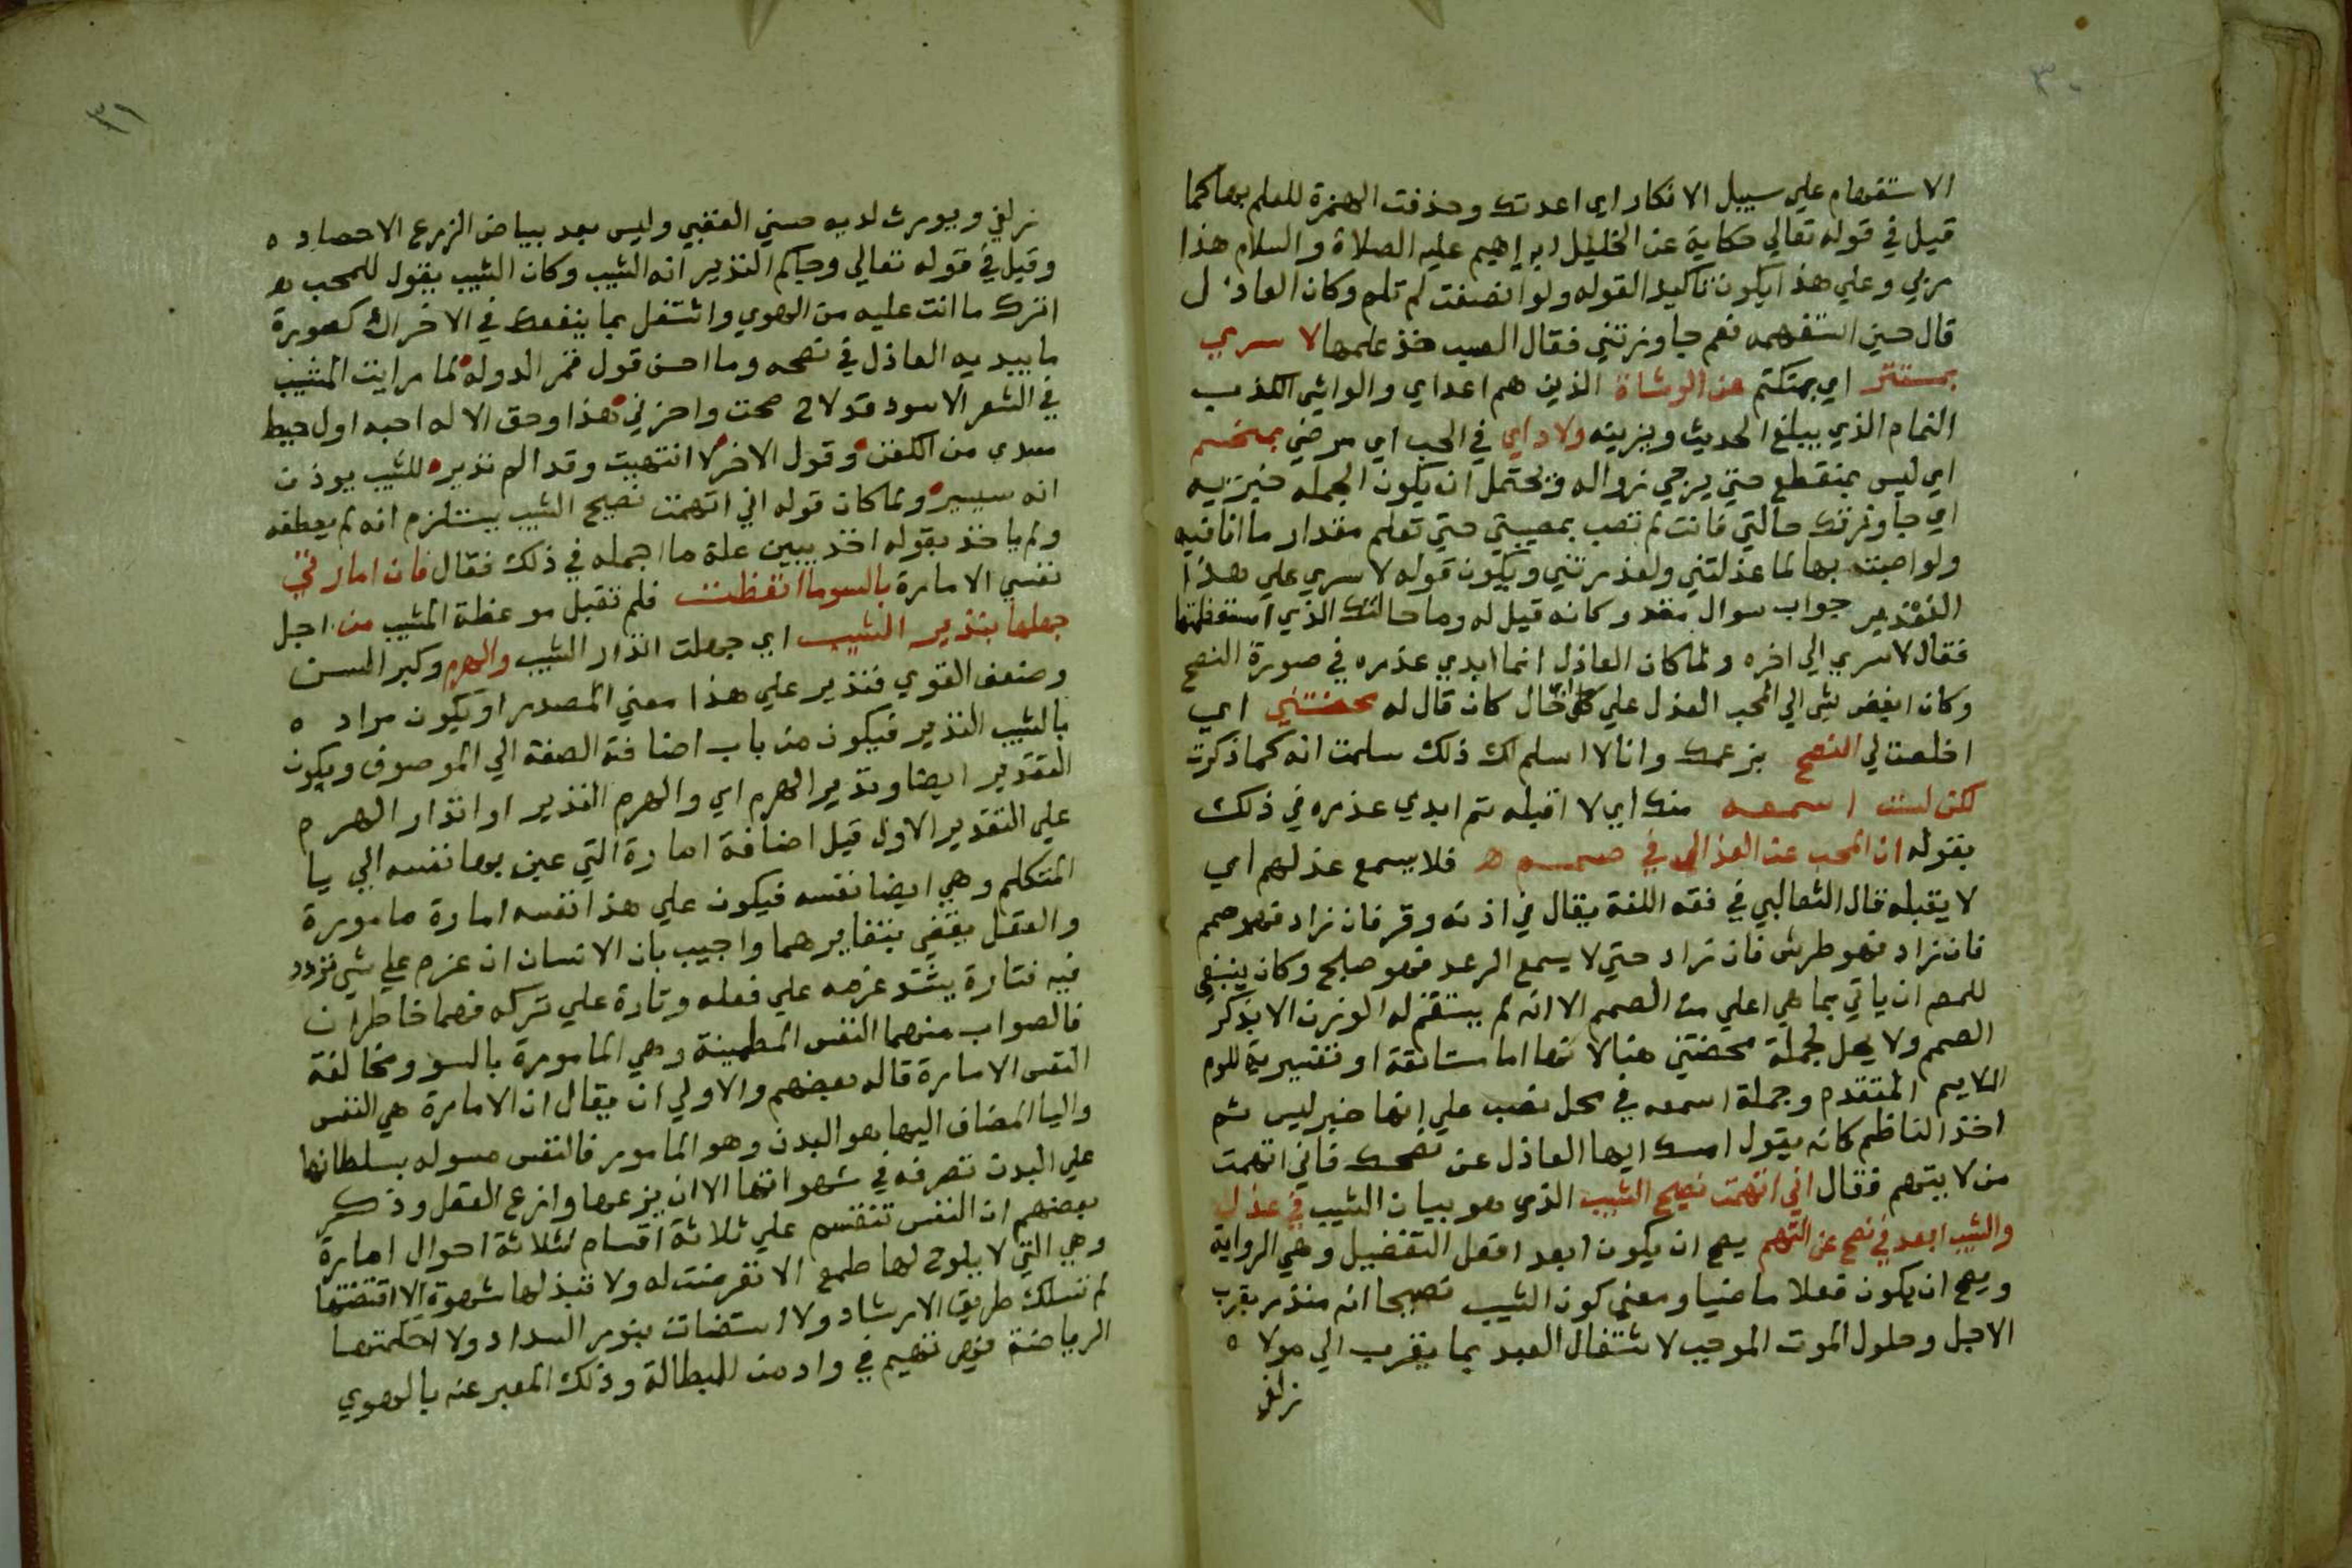 ٣٠
الاستفهام علي سبيل الانكار اي اعدتك وحذفت الهمزة للعلم بها كما
قيل في قوله تعالي حكاية عن الخليل ابراهيم عليه الصلاة والسلام هذا
ربي وعلي هذا يكون تاكيدا لقوله ولو انصفت لم تلم وكان العاذل
قال حين استفهمه نعم جاوزتني فقال الصب خذ علمها لا سري
بمستتر اي بمكتتم عن الوشاة الذين هم اعداي والواشي الكذب
النمام الذي يبلغ الحديث ويزينه ولا داي في الحب اي مرضي بمنحسم
اي ليس بمنقطع حتي يرجي زواله ويحتمل ان يكون الجمله خبرية
اي جاوزتك حالتي فانت لم تصب بمصيبتي حتي تعلم مقدار ما انا فيه
ولو اصبت بها لما عذلتني ولعذرتني ويكون قوله لا سري علي هذا
التقدير جواب سوال مقدر كانه قيل له وما حالتك الذي استفظعتها
فقال لا سري الي اخره ولما كان العاذل انما ابدي عذره في صورة النصح
وكان ابغض شي الي المحب العذل علي كل حال كان قال له محضتني اي
اخلصت لي النصح بزعمك وانا لا اسلم لك ذلك سلمت انه كما ذكرت
لكن لست اسمعه منك اي لا اقبله ثم ابدي عذره في ذلك
بقوله ان المحب عن العذال في صمم ه فلا يسمع عذلهم اي
لا يقبله قال الثعالبي في فقه اللغة يقال في اذنه وقر فان زاد فهو صمم
فان زاد فهو طرش فان زاد حتي لا يسمع الرعد فهو صلخ وكان ينبغي
للمص ان ياتي بما هي اعلي من الصمم الا انه لم يستقم له الوزن الا بذكر
الصمم ولا محل لجملة محضتني هنا لانها اما مستانفة او تفسيرية للوم
اللايم المتقدم وجملة اسمعه في محل نصب علي انها خبر ليس ثم
اخذ الناظم كانه يقول امسك ايها العاذل عن نصحك فاني اتهمت
من لا يتهم فقال اني اتهمت نصيح الشيب الذي هو بيان الشيب في عذل
والشيب ابعد في نصح عن التهم يصح ان يكون ابعد افعل التفضيل وهي الرواية
ويصح ان يكون فعلا ماضيا ومعني كون الشيب نصيحا انه منذر بقرب
الاجل وحلول الموت الموجب لاشتغال العبد بما يقرب الي مولاه
زلفي
٣١
زلفي ويورث لديه حسني العقبي وليس بعد بياض الزرع الا حصاده
وقيل في قوله تعالي وجاكم النذير انه الشيب وكان الشيب يقول للمحب
اترك ما انت عليه من الهوي واشتغل بما ينفعك في الاخراك كصورة
ما يبديه العاذل في نصحه وما احسن قول فخر الدوله لما رايت المشيب
في الشعر الاسود قد لاح صحت واحزني هذا وحق الاله احبه اول خيط
سدي من الكفن وقول الاخر لا انتهيت وقد الم نذير للشيب يوذن
انه سيسير ولما كان قوله اني اتهمت نصيح الشيب يستلزم انه لم يعطفه
ولم ياخذ بقوله اخذ يبين علة ما اجمله في ذلك فقال فان امارتي
نفسي الامارة بالسوما اتعظت فلم تقبل موعظة المشيب من اجل
جهلها بنذير الشيب اي جهلت انذار الشيب والهرم وكبر السن
وضعف القوي فنذير علي هذا معني المصدر او يكون مراده
بالشيب النذير فيكون من باب اضافة الصفة الي الموصوف ويكون
التقدير ايضا ونذير الهرم اي والهرم النذير او انذار الهرم
علي التقدير الاول قيل اضافة امارة التي عين بها نفسه الي يا
المتكلم وهي ايضا نفسه فيكون علي هذا نفسه امارة مامورة
والعقل يقضي بتغايرهما واجيب بان الانسان ان عزم علي شي تردد
فيه فتارة يشتد عزمه علي فعله وتارة علي تركه فهما خاطران
فالصواب منهما النفس المطمينة وهي المامورة بالسوو مخالفة
النفس الامارة قاله بعضهم والاولي ان يقال ان الامارة هي النفس
واليا المضاف اليها هو البدن وهو المامور فالنفس مسوله بسلطانها
علي البدن تصرفه في شهواتها الا ان يزعها وازع العقل وذكر
بعضهم ان النفس تنقسم علي ثلاثة اقسام لثلاثة احوال امارة
وهي التي لا يلوح لها طمع الا تعرضت له ولا تبدلها شهوة الا اقتضتها
لم تسلك طريق الارشاد ولا استضات بنور السداد ولا احكمتها
الرياضة فهي تهيم في واد من للبطالة وذلك المعبر عنه بالهوي